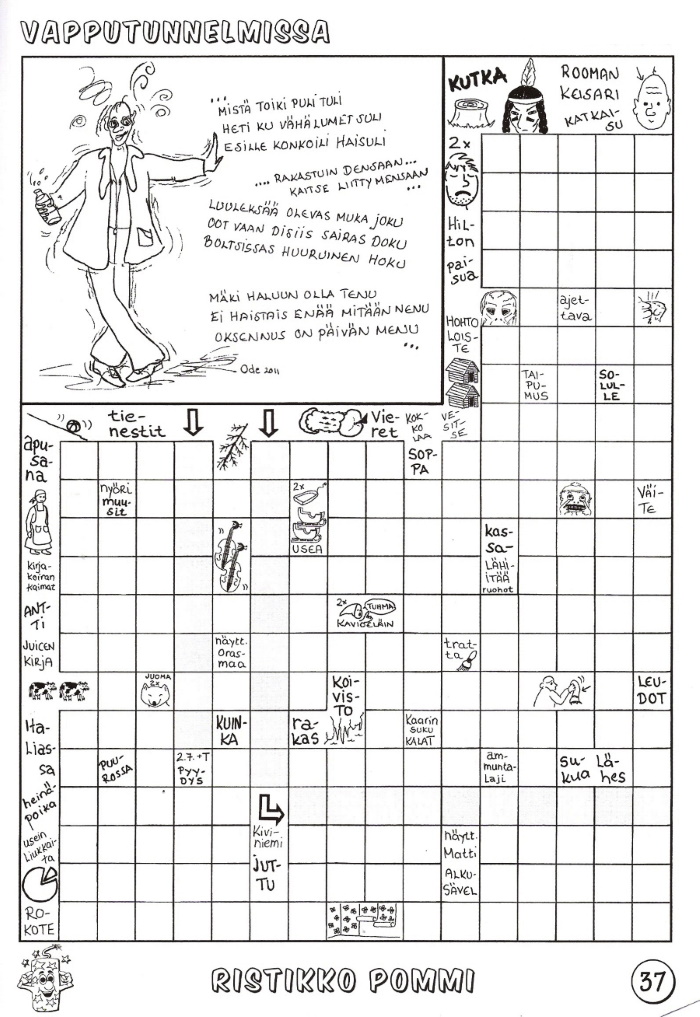 VAPPUTUNNELMISSA
... MISTÄ TOIKI PULI TULI
HETI KU VÄHÄ LUMET SULI
ESILLE KONKOILI HAISULI
.... RAKASTUIN DENSAAN...
KAITSE LIITTYMENSAAN
...
LUULEKSÄÄ OLEVAS MUKA JOKU
OOT VAAN DISIIS SAIRAS DOKU
BOLTSISSAS HUURUINEN HOKU
MÄKI HALUUN OLLA TENU
EI HAISTAIS ENÄÄ MITÄÄN NENU
OKSENNUS ON PÄIVÄN MENU
...
Ode 2011
KUTKA
ROOMAN
KEISARI
KATKAI-
SU
2x
HIL-
ton
pai-
sua
ajet-
tava
HOHTO
LOIS-
TE
TAI-
PU-
MUS
SO-
LUL-
LE
tie-
nestit
Vie-
ret
KOK-
KO
LAA
VE-
SIT-
SE
SOP-
PA
apu-
sa-
na
nyöri
muu-
sit
2x
USEA
VÄI-
TE
kas-
sa-
LÄHI-
ITÄÄ
ruohot
kirja-
koiran
kaimat
ANT-
TI
2x
TUHMA
KAVIOELÄIN
JUICEN
KIRJA
näytt.
Oras-
maa
trat-
ta
JUOMA
2x
KOI-
VIS-
TO
LEU-
DOT
Ita-
lias-
sa
KUIN-
KA
ra-
kas
Kaarin
SUKU
KALAT
PUU-
ROSSA
2.7.+T
PYY-
DYS
am-
munta-
laji
su-
kua
Lä-
hes
heinä-
poika
usein
Liukkai-
ta
Kivi-
niemi
JUT-
TU
näytt.
Matti
ALKU-
SÄVEL
RO-
KOTE
RISTIKKO POMMI
37